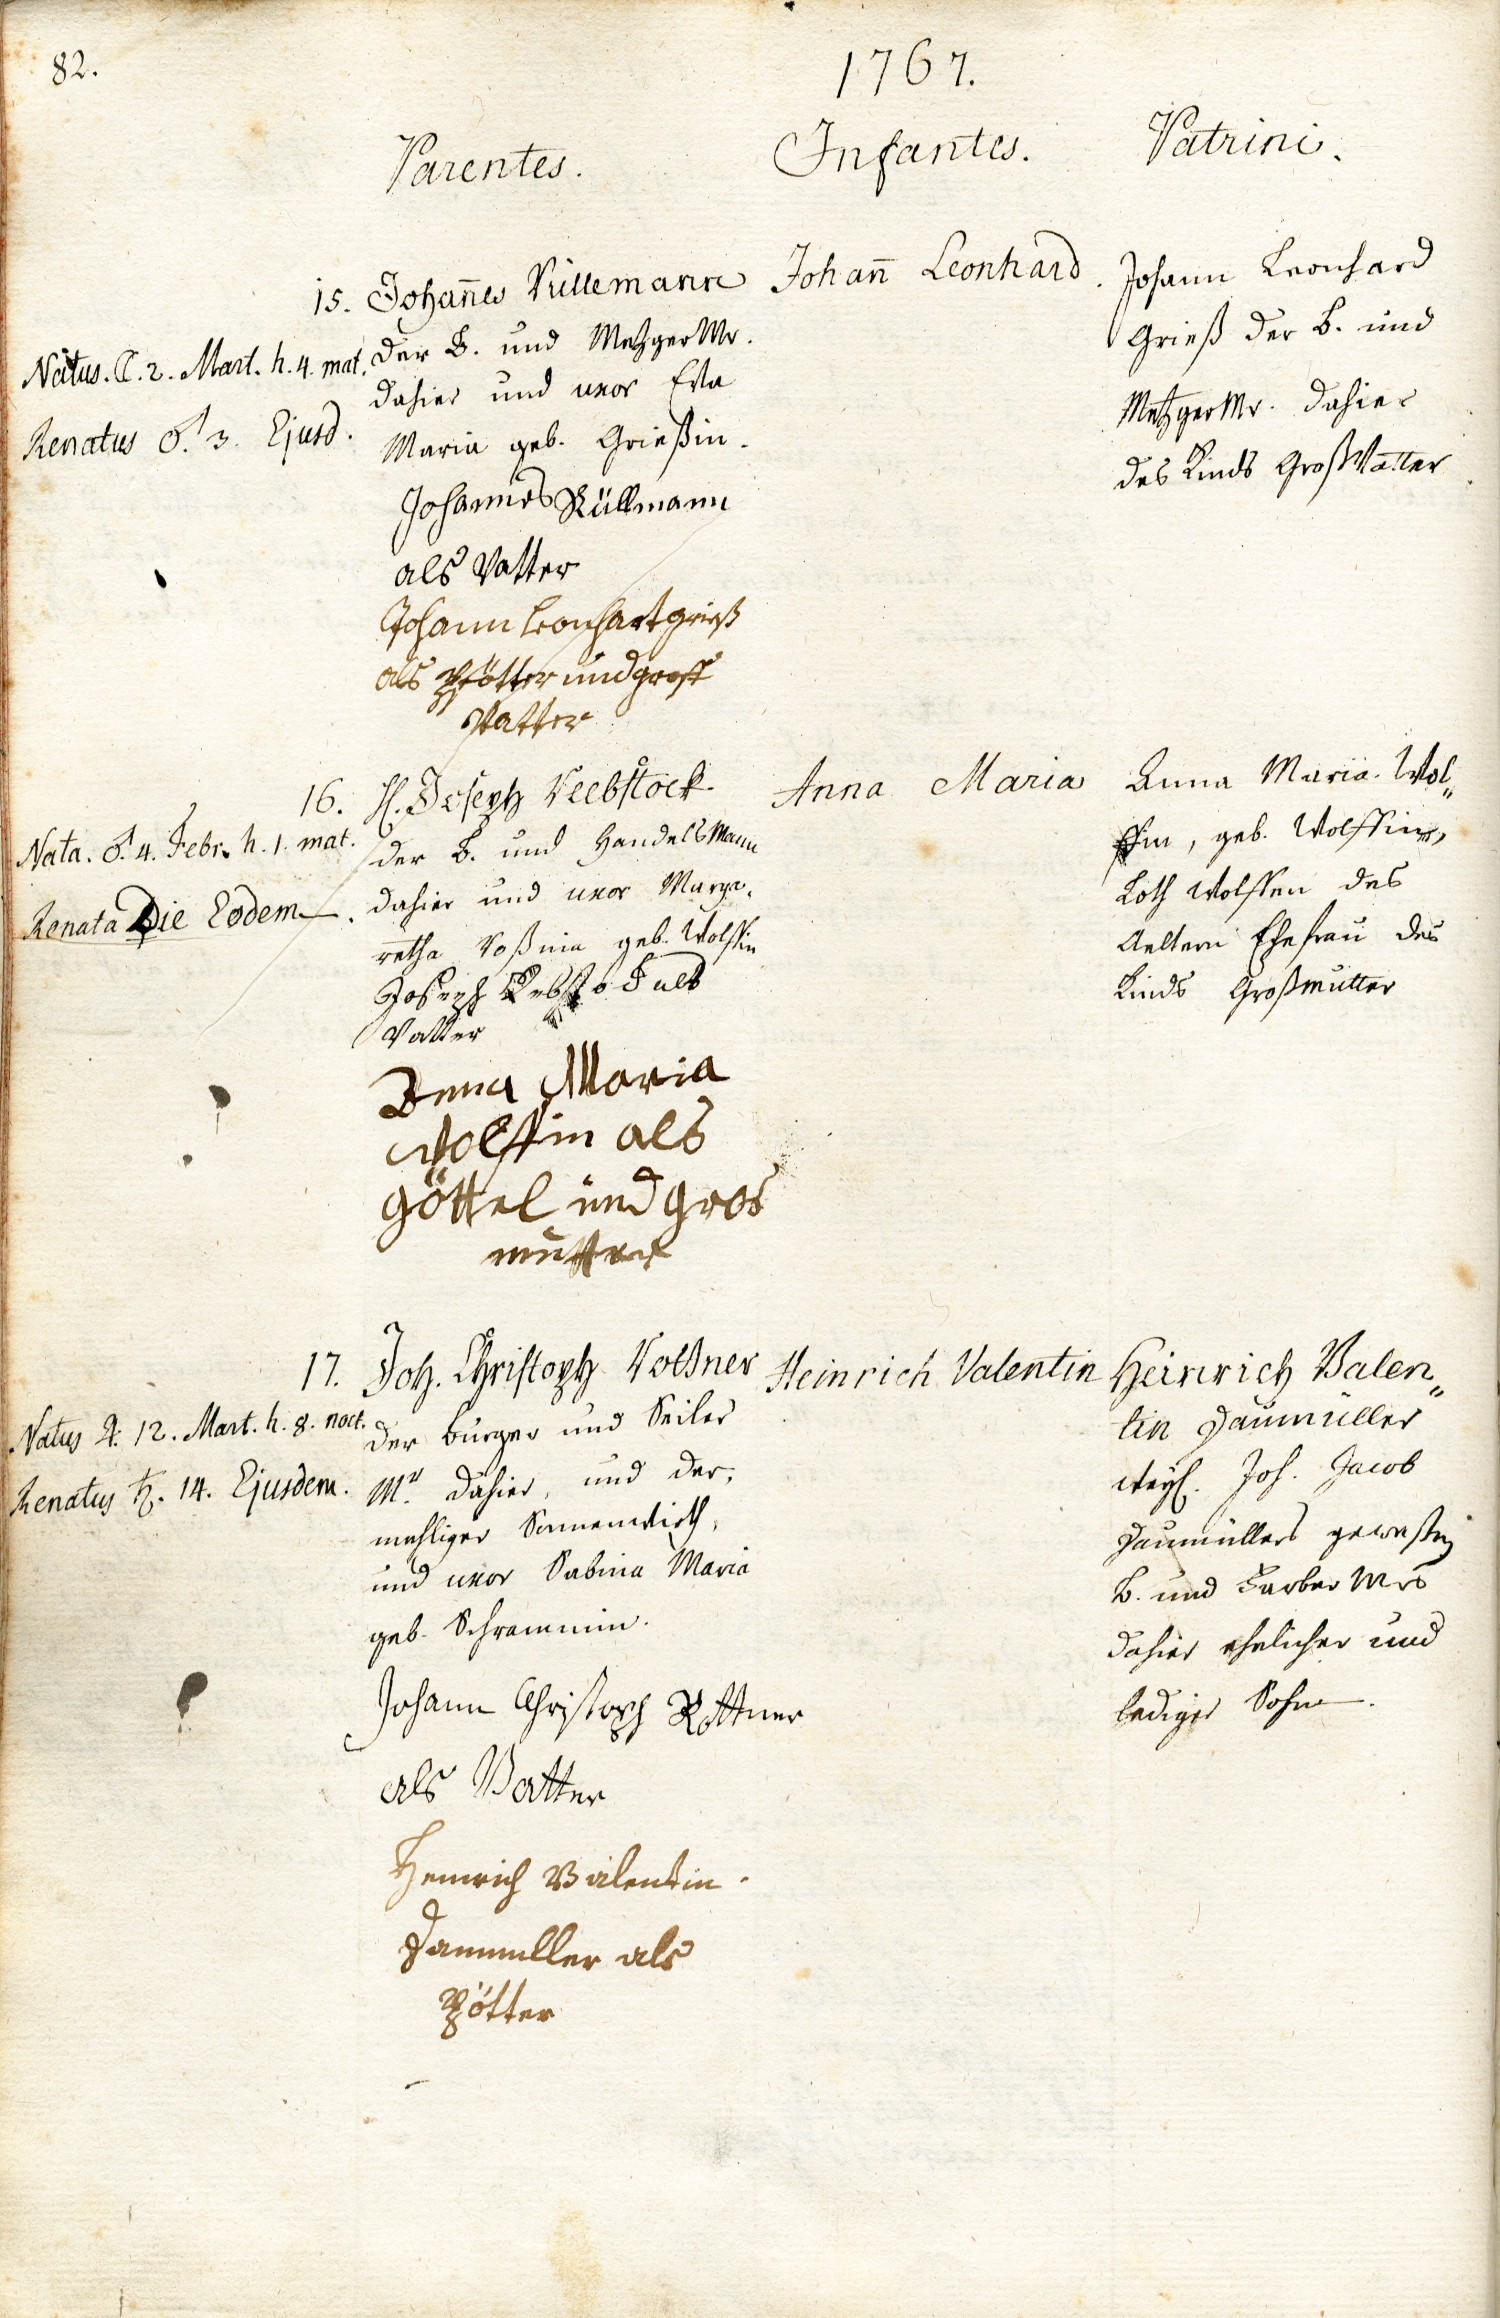 82.
1767.
Parentes.
Infantes.
Patrini.
15. Johan̄es Rüllemann
der B. und MetzgerMr.
dahier und uxor Eva
Maria geb. Grießin.
Johannes Rüllmann
als Vatter
Johann Leonhart grieß
als Pfötter und groß
Vatter
Natus. ☾. 2. Mart. h. 4. mat.
Renatus ♂. 3. Ejusd.
Johan̄ Leonhard.
Johann Leonhard
Grieß der B. und
MetzgerMr. dahier
des Kinds GroßVatter
16. H. Joseph Rebstock.
der B. und HandelsMann
dahier und uxor Marga-
retha Rosina geb. Wolffin
Joseph Rebstock als
Vatter
Anna Maria
Wolffin als
göttel und gros
mutter
Nata. ♂. 4. Febr. h. 1. mat.
Renata Die Eodem.
Anna Maria
Anna Maria Wol„
ffin, geb. Wolffin,
Loth Wolffen des
Aeltern Ehefrau des
Kinds Großmutter
17. Joh. Christoph Rottner
der Burger und Seiler
Mr. dahier, und der-
mahliger Sonnenwirth,
und uxor Sabina Maria
geb. Schrammin.
Johann Christoph Rottner
als Vatter
Heinrich Valentin
Daumüller als
Pfötter
Natus ♃. 12. Mart. h. 8. noct.
Renatus ♄. 14. Ejusdem.
Heinrich Valentin
Heinrich Valen„
tin Daumüller
weyl. Joh. Jacob
Daumüllers geweßen
B. und Farber Mrs
dahier ehelicher und
lediger Sohn.